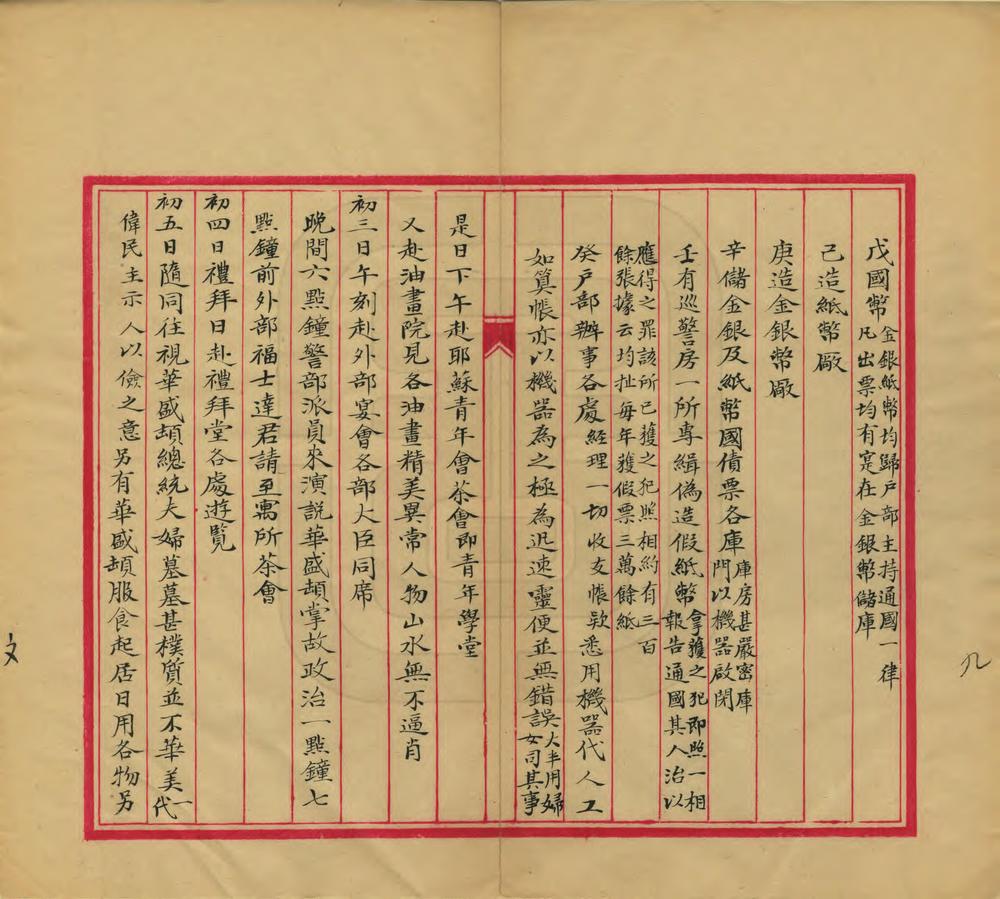 戊國幣金銀紙幣均歸戶部主持通國一律凡出票均有定在金銀幣儲庫
己造紙幣厰
庚造金銀幣厰
辛儲金銀及紙幣國債票各庫庫房甚嚴密庫門以機器啟閉
壬有巡警房一所專緝偽造假紙幣拿獲之犯即照一相報告通國其人治以
應得之罪該所已獲之犯照相約有三百餘張據云均扯每年獲假票三萬餘紙
癸戶部辦事各處經理一切收支帳款悉用機器代人工
如算帳亦以機器為之極為迅速靈便並無錯誤大半用婦女司其事
是日下午赴耶蘇青年會茶會即青年學堂
又赴油畫院見各油畫精美異常人物山水無不逼肖
初三日午刻赴外部宴會各部大臣同席
晚間六點鐘警部派員來演說華盛頓掌故政治一點鐘七
點鐘前外部福士達君請至寓所茶會
初四日禮拜日赴禮拜堂各處遊覽
初五日隨同往視華盛頓總統夫婦墓墓甚樸質並不華美一代
偉民主示人以儉之意另有華盛頓服食起居日用各物另